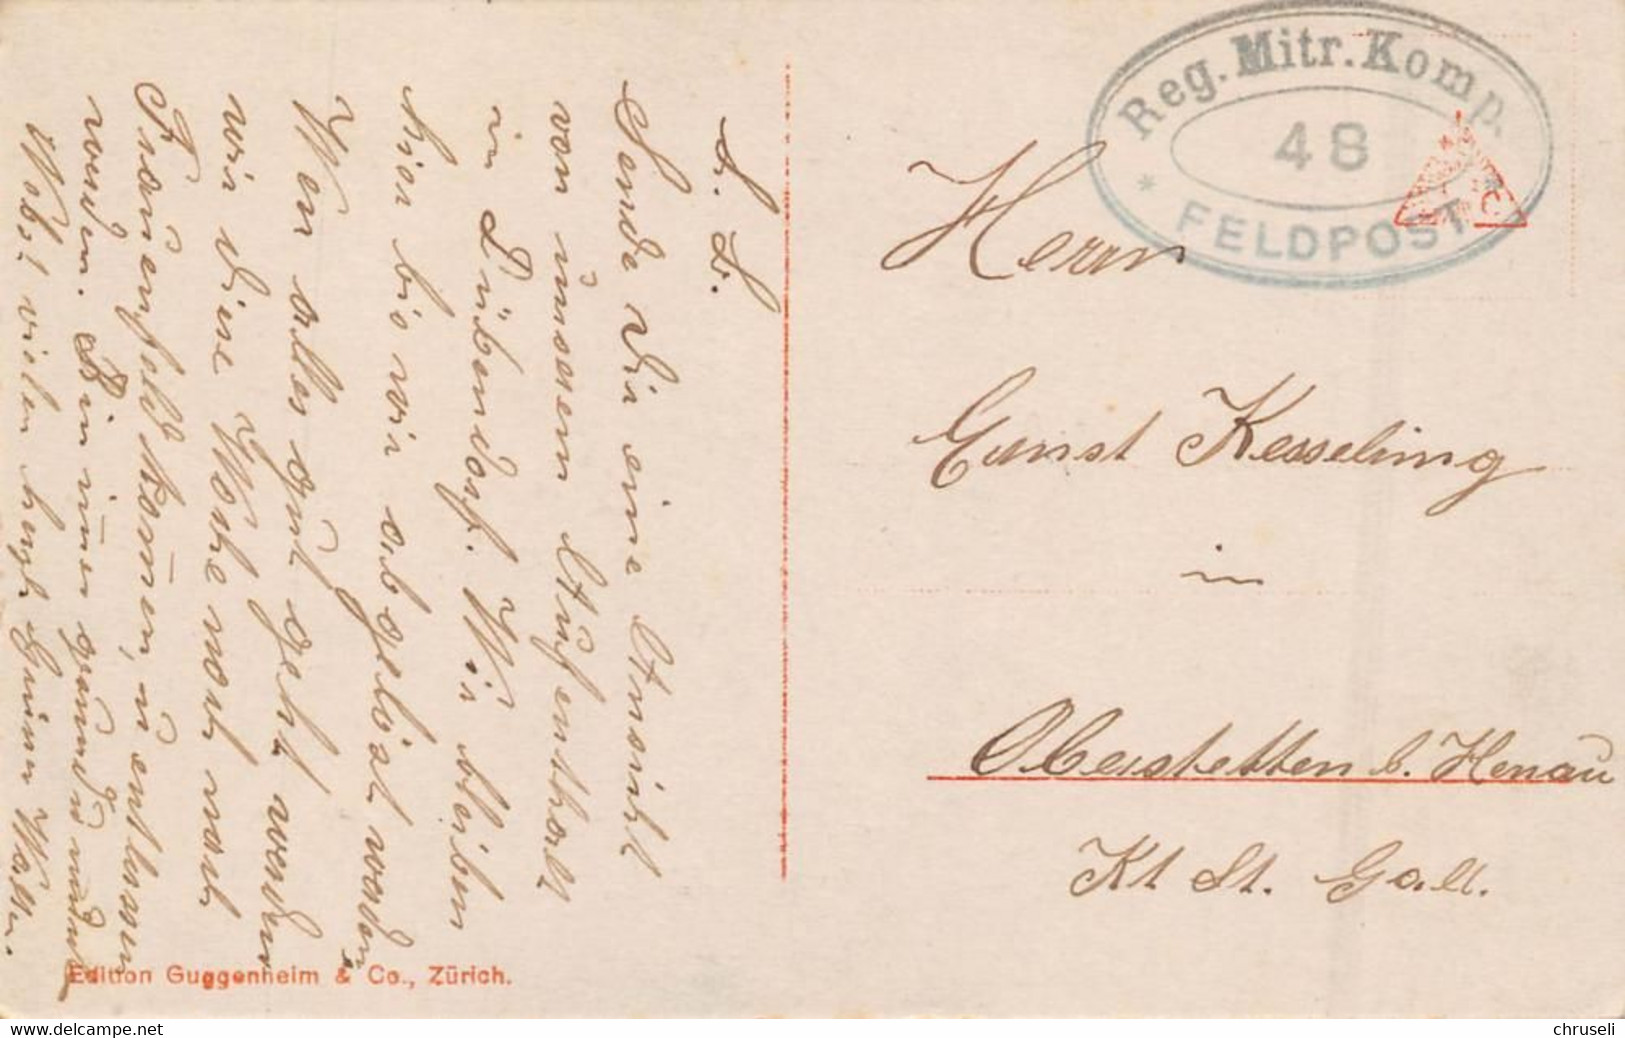 L. B.
Sende dir eine Ansicht
von unserem Aufenthalt
in Dübendorf. Wir bleiben
hier bis wir abgelöst werden
Wen alles gut geht werden
wir diese Woche noch nach
Frauenfeld kom̄en, u. entlassen
werden. Bin im̄er gesund u. munter
Wobst vielen herzl.
Walter.
Edition Guggenheim & Co., Zürich.
Reg. Mitr. Komp.
48
* FELDPOST *
Herrn
Ernst Kesseling
in
Oberstetten b. Henau
Kt St. Gall.
www.delcampe.net
chruseli